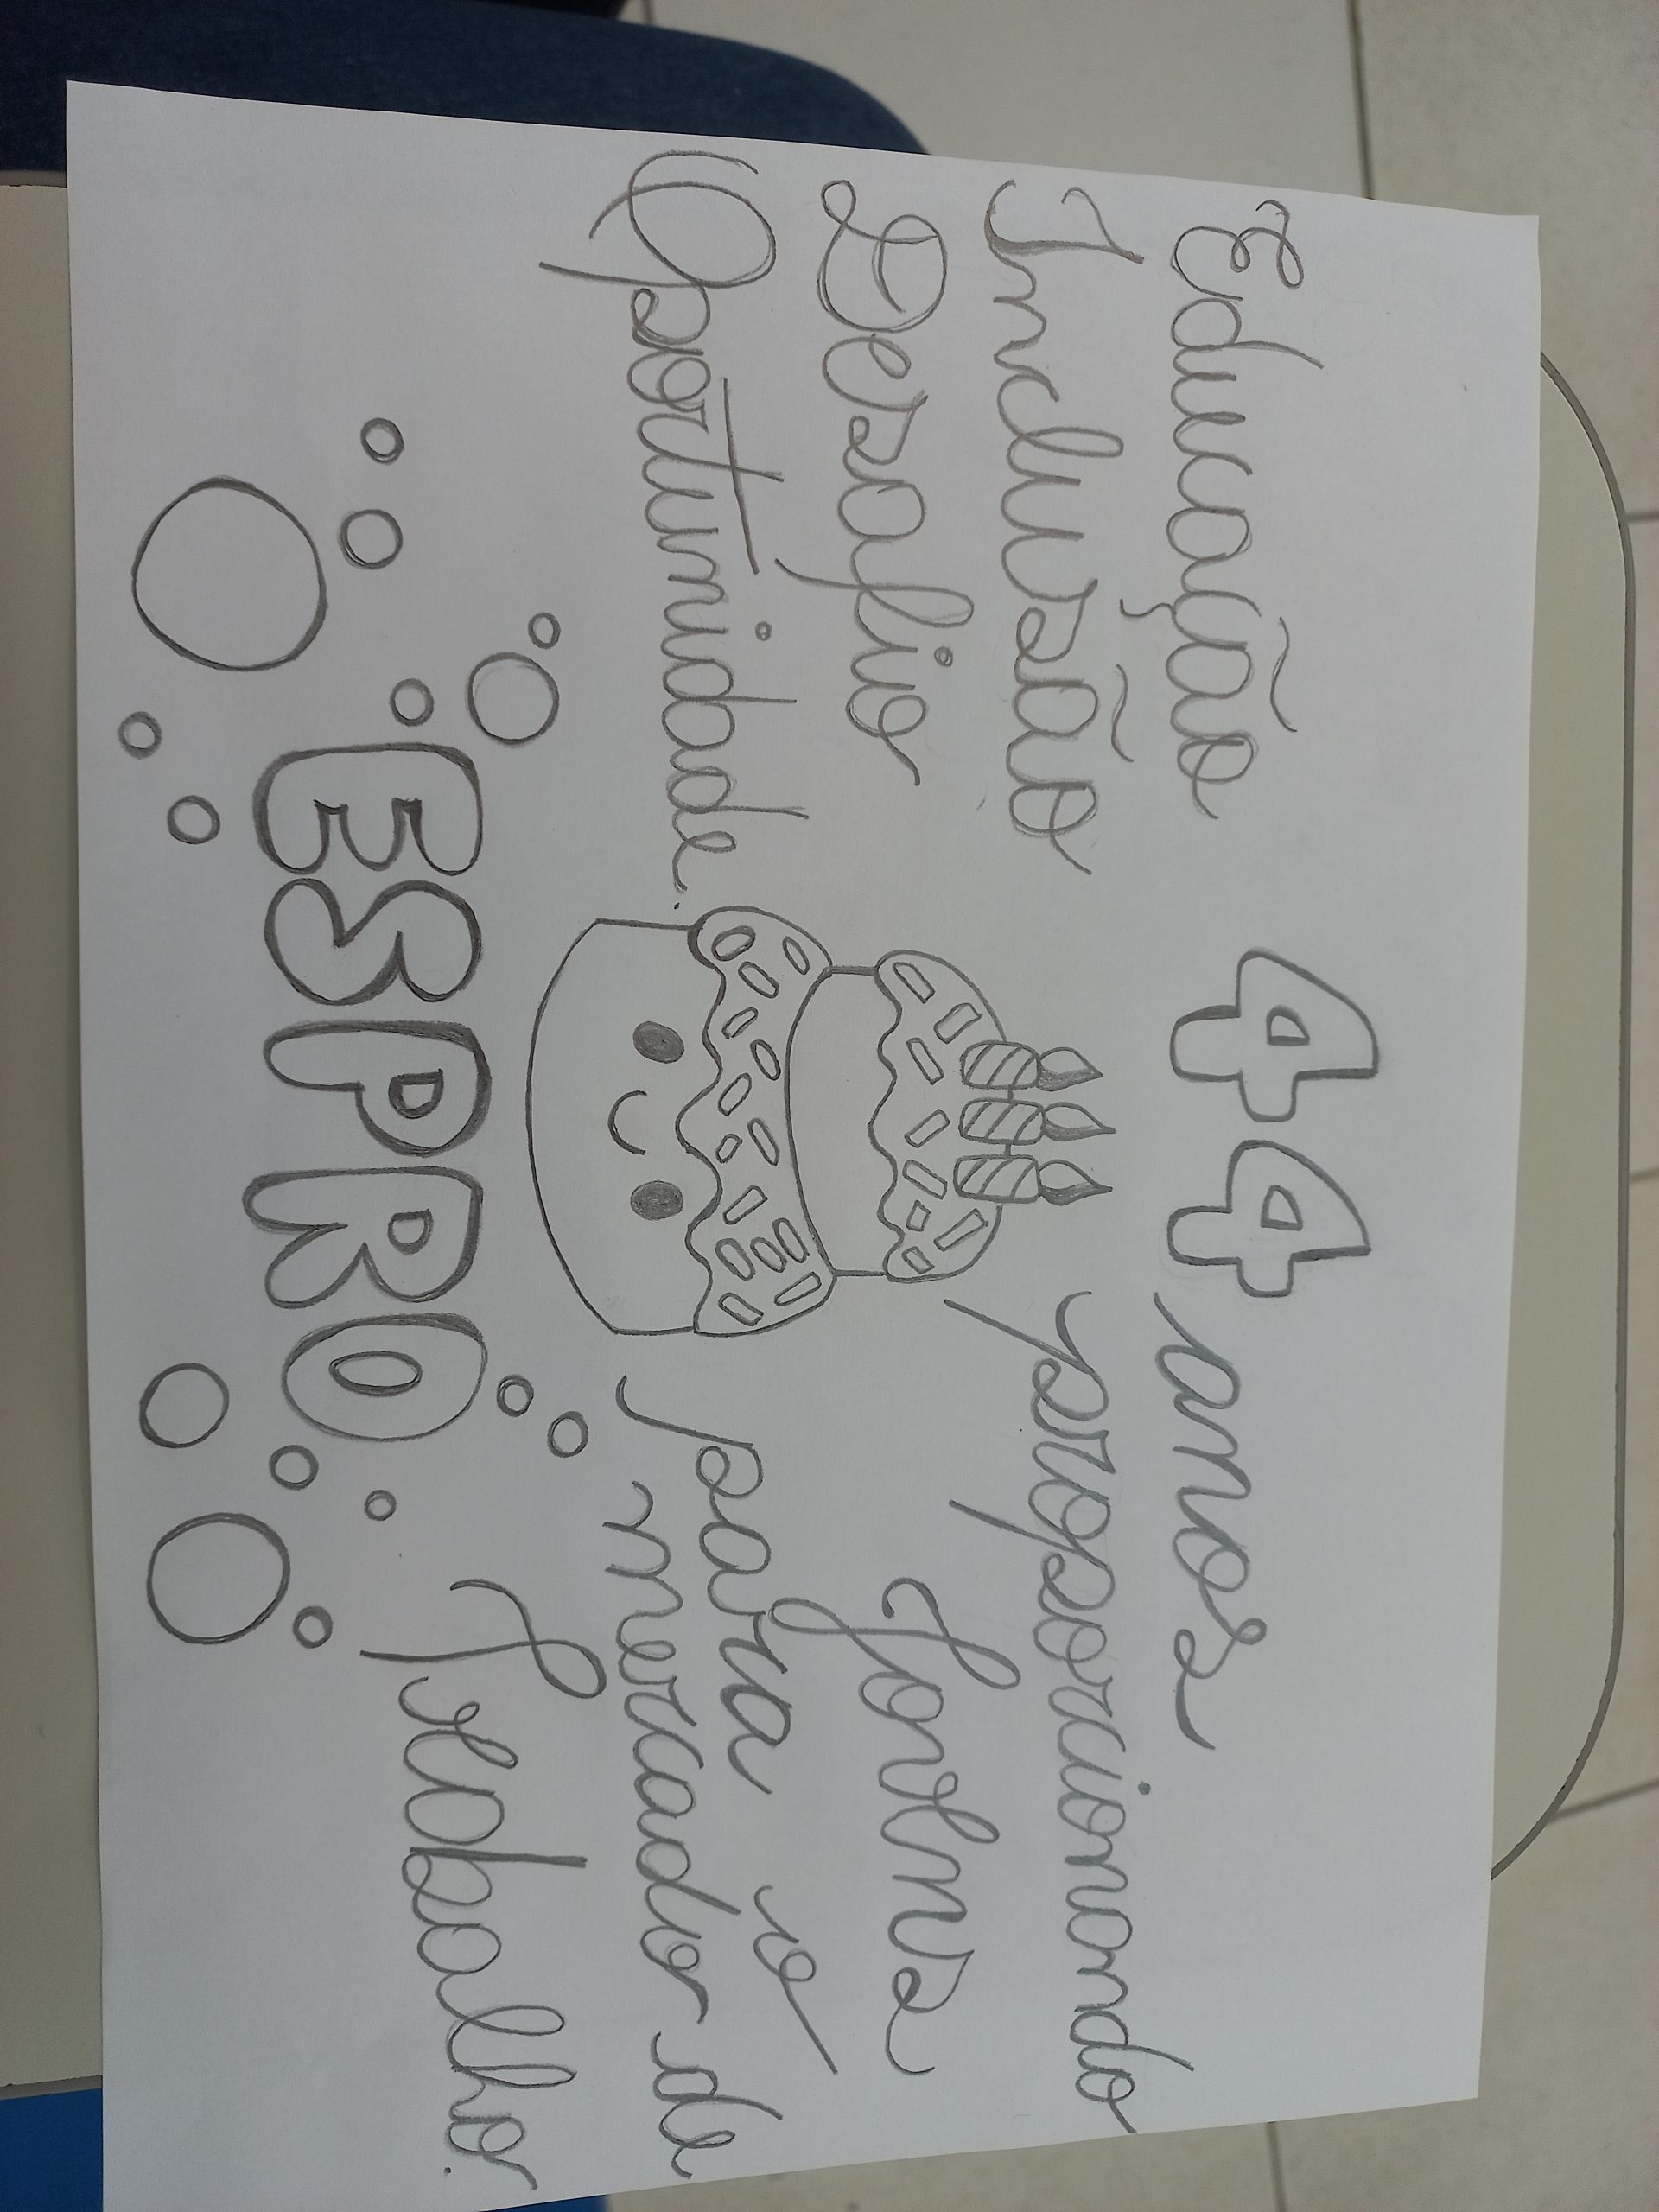 Educação
Inclusão
Desafio
Oportunidade.
44 anos
proporcionando
Jovens
para o
mercado de
trabalho.
ESPRO